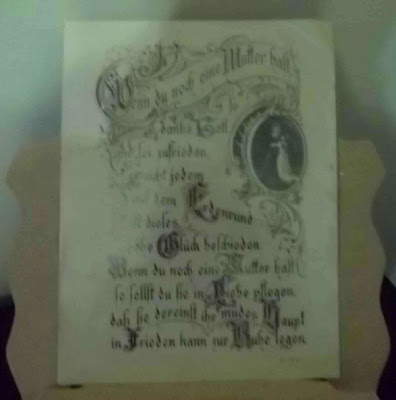 Wenn du noch eine Mutter hast
So
danke Gott
und sei zufrieden
nicht jedem
auf dem Erdenrund
ist dieses
hohe Glück beschieden.
Wenn du noch eine Mutter hast
so sollst du sie in Liebe pflegen,
daß sie dereinst ihr müdes Haupt
in Frieden kann zur Ruhe legen.